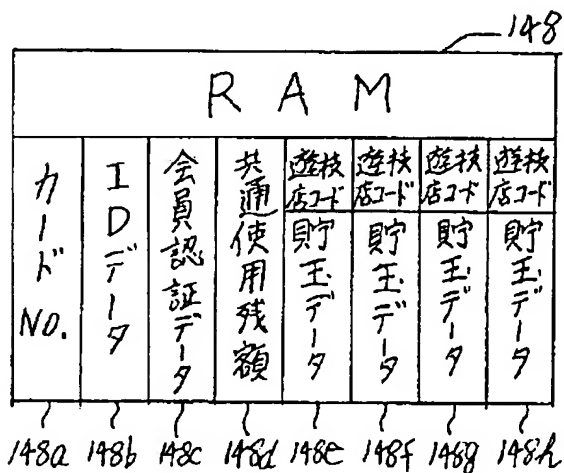 148
RAM
カードNO.
IDデータ
会員認証データ
共通使用残額
遊技店コード
貯玉データ
遊技店コード
貯玉データ
遊技店コード
貯玉データ
遊技店コード
貯玉データ
148a 148b 148c 148d 148e 148f 148g 148h